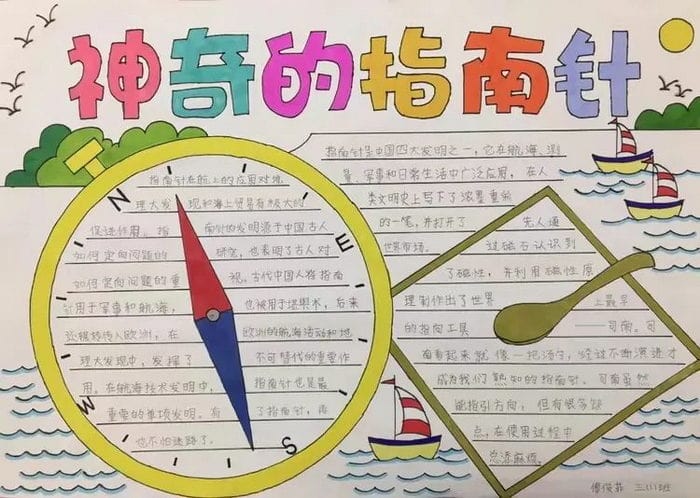 神奇的指南针
N
E
S
W
指南针在航上的应用对地
理大发 现和海上贸易有极大的
促进作用。指 南针的发明源于中国古人
如何定向问题的 研究，也表明了古人对
如何定向问题的重 视，古代中国人将指南
针用于军事和航海， 也被用于堪舆术，后来
还辗转传入欧洲，在 欧洲的航海活动和地
理大发现中，发挥了 不可替代的重要作
用。在航海技术发明中， 指南针也是最
重要的单项发明。有 了指南针，再
也不怕迷路了。
指南针是中国四大发明之一，它在航海、测
量、军事和日常生活中广泛应用，在人
类文明史上写下了浓墨重彩
的一笔，并打开了
世界市场。 先人通
过磁石认识到
了磁性，并利用磁性原
理制作出了世界 上最早
的指向工具 ——司南。司
南看起来就像一把汤勺，经过不断演进才
成为我们熟知的指南针。司南虽然
能指引方向，但有很多缺
点，在使用过程中
总添麻烦。
三(11)班